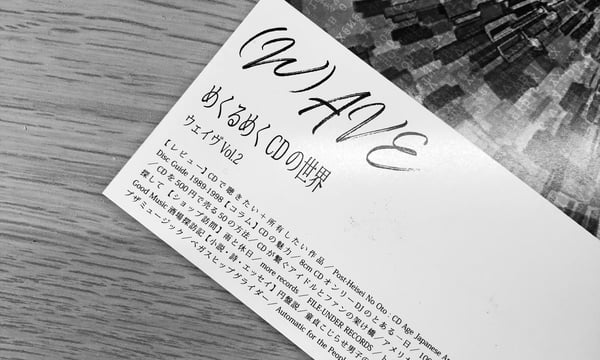 (W)AVE
めくるめくCDの世界
ウェイヴ Vol.2
【レビュー】CDで聴きたい＋所有したい作品／Post-Heisei No Oto : CD Age Japanese
Disc Guide 1989-1998【コラム】CDの魅力／8cm CDオンリーDJのとある一日／
／CDを500円で売る50の方法／CDが繋ぐアイドルとファンの架け橋／アメリ
探して【ショップ訪問】雨と休日／more records／FILE-UNDER RECORDS／
Good Music 酒場探訪記【小説・詩・エッセイ】円盤説／童貞こじらせ男子の
ブザミュージック／ペガスヒップグライダー／Automatic for the People